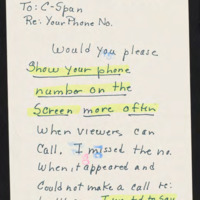 To: C-Span
Re: Your Phone No.
Would you please
Show your phone
number on the
Screen more often
When viewers can
Call. I missed the no.
When it appeared and
Could not make a call re: